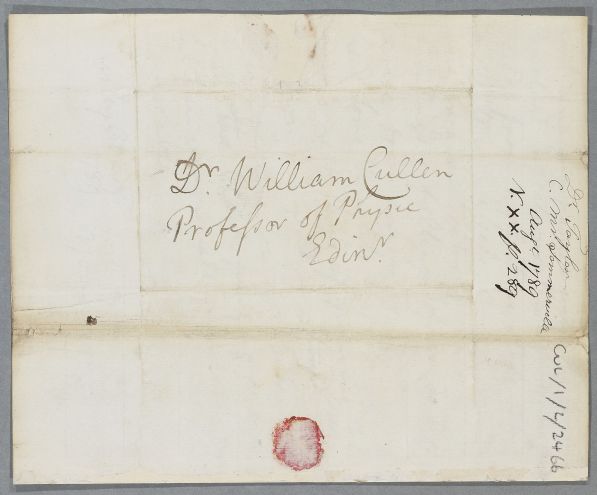 Dr. William Cullen
Professor of Physic
Edinr.
Dr. Taylor
C. Mr. Sommerville
Augt. 1789
N. XX. p. 289
CUL/1/2/2466